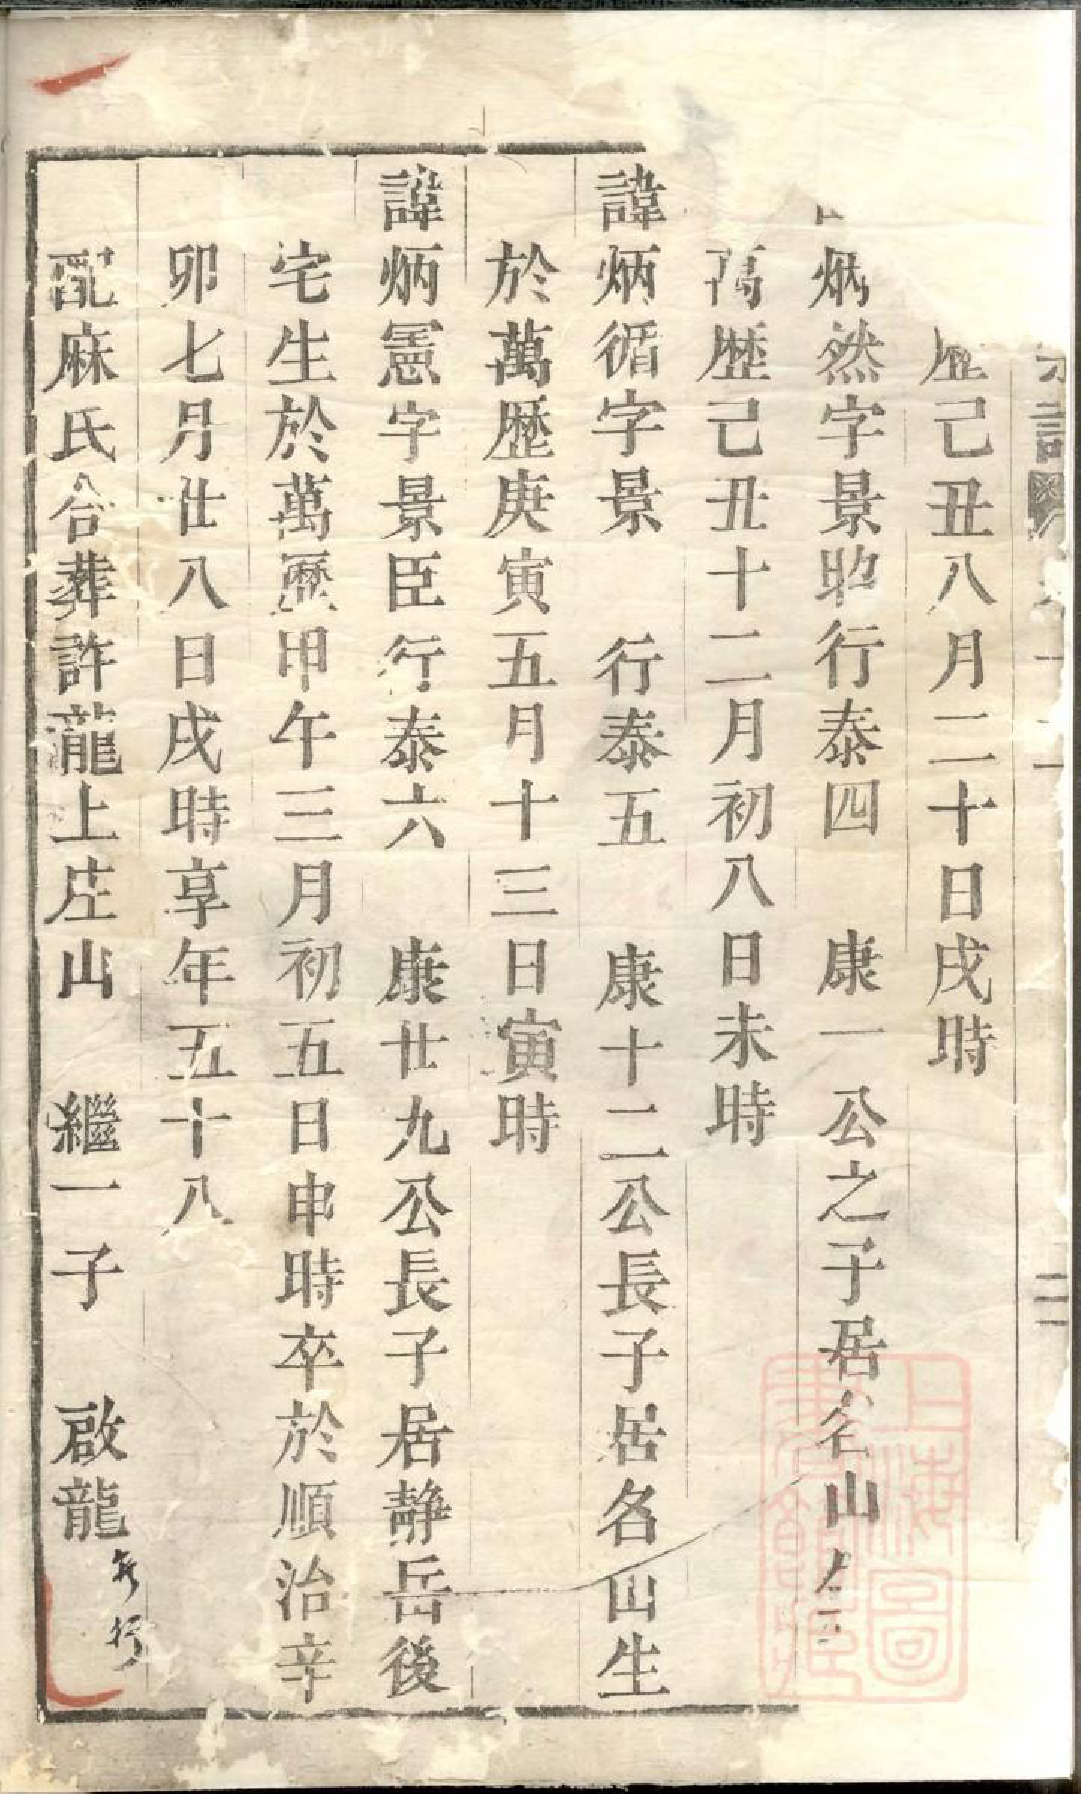 歷己丑八月二十日戌時
炳然字景昭行泰四　康一公之子居名山生
萬歷己丑十二月初八日未時
諱炳循字景　行泰五　康十二公長子居名山生
於萬歷庚寅五月十三日寅時
諱炳憲字景臣行泰六　康廿九公長子居靜岳後
宅生於萬歷甲午三月初五日申時卒於順治辛
卯七月廿八日戌時享年五十八
配麻氏合葬許瀧上庄山　繼一子　啟龍
上海圖